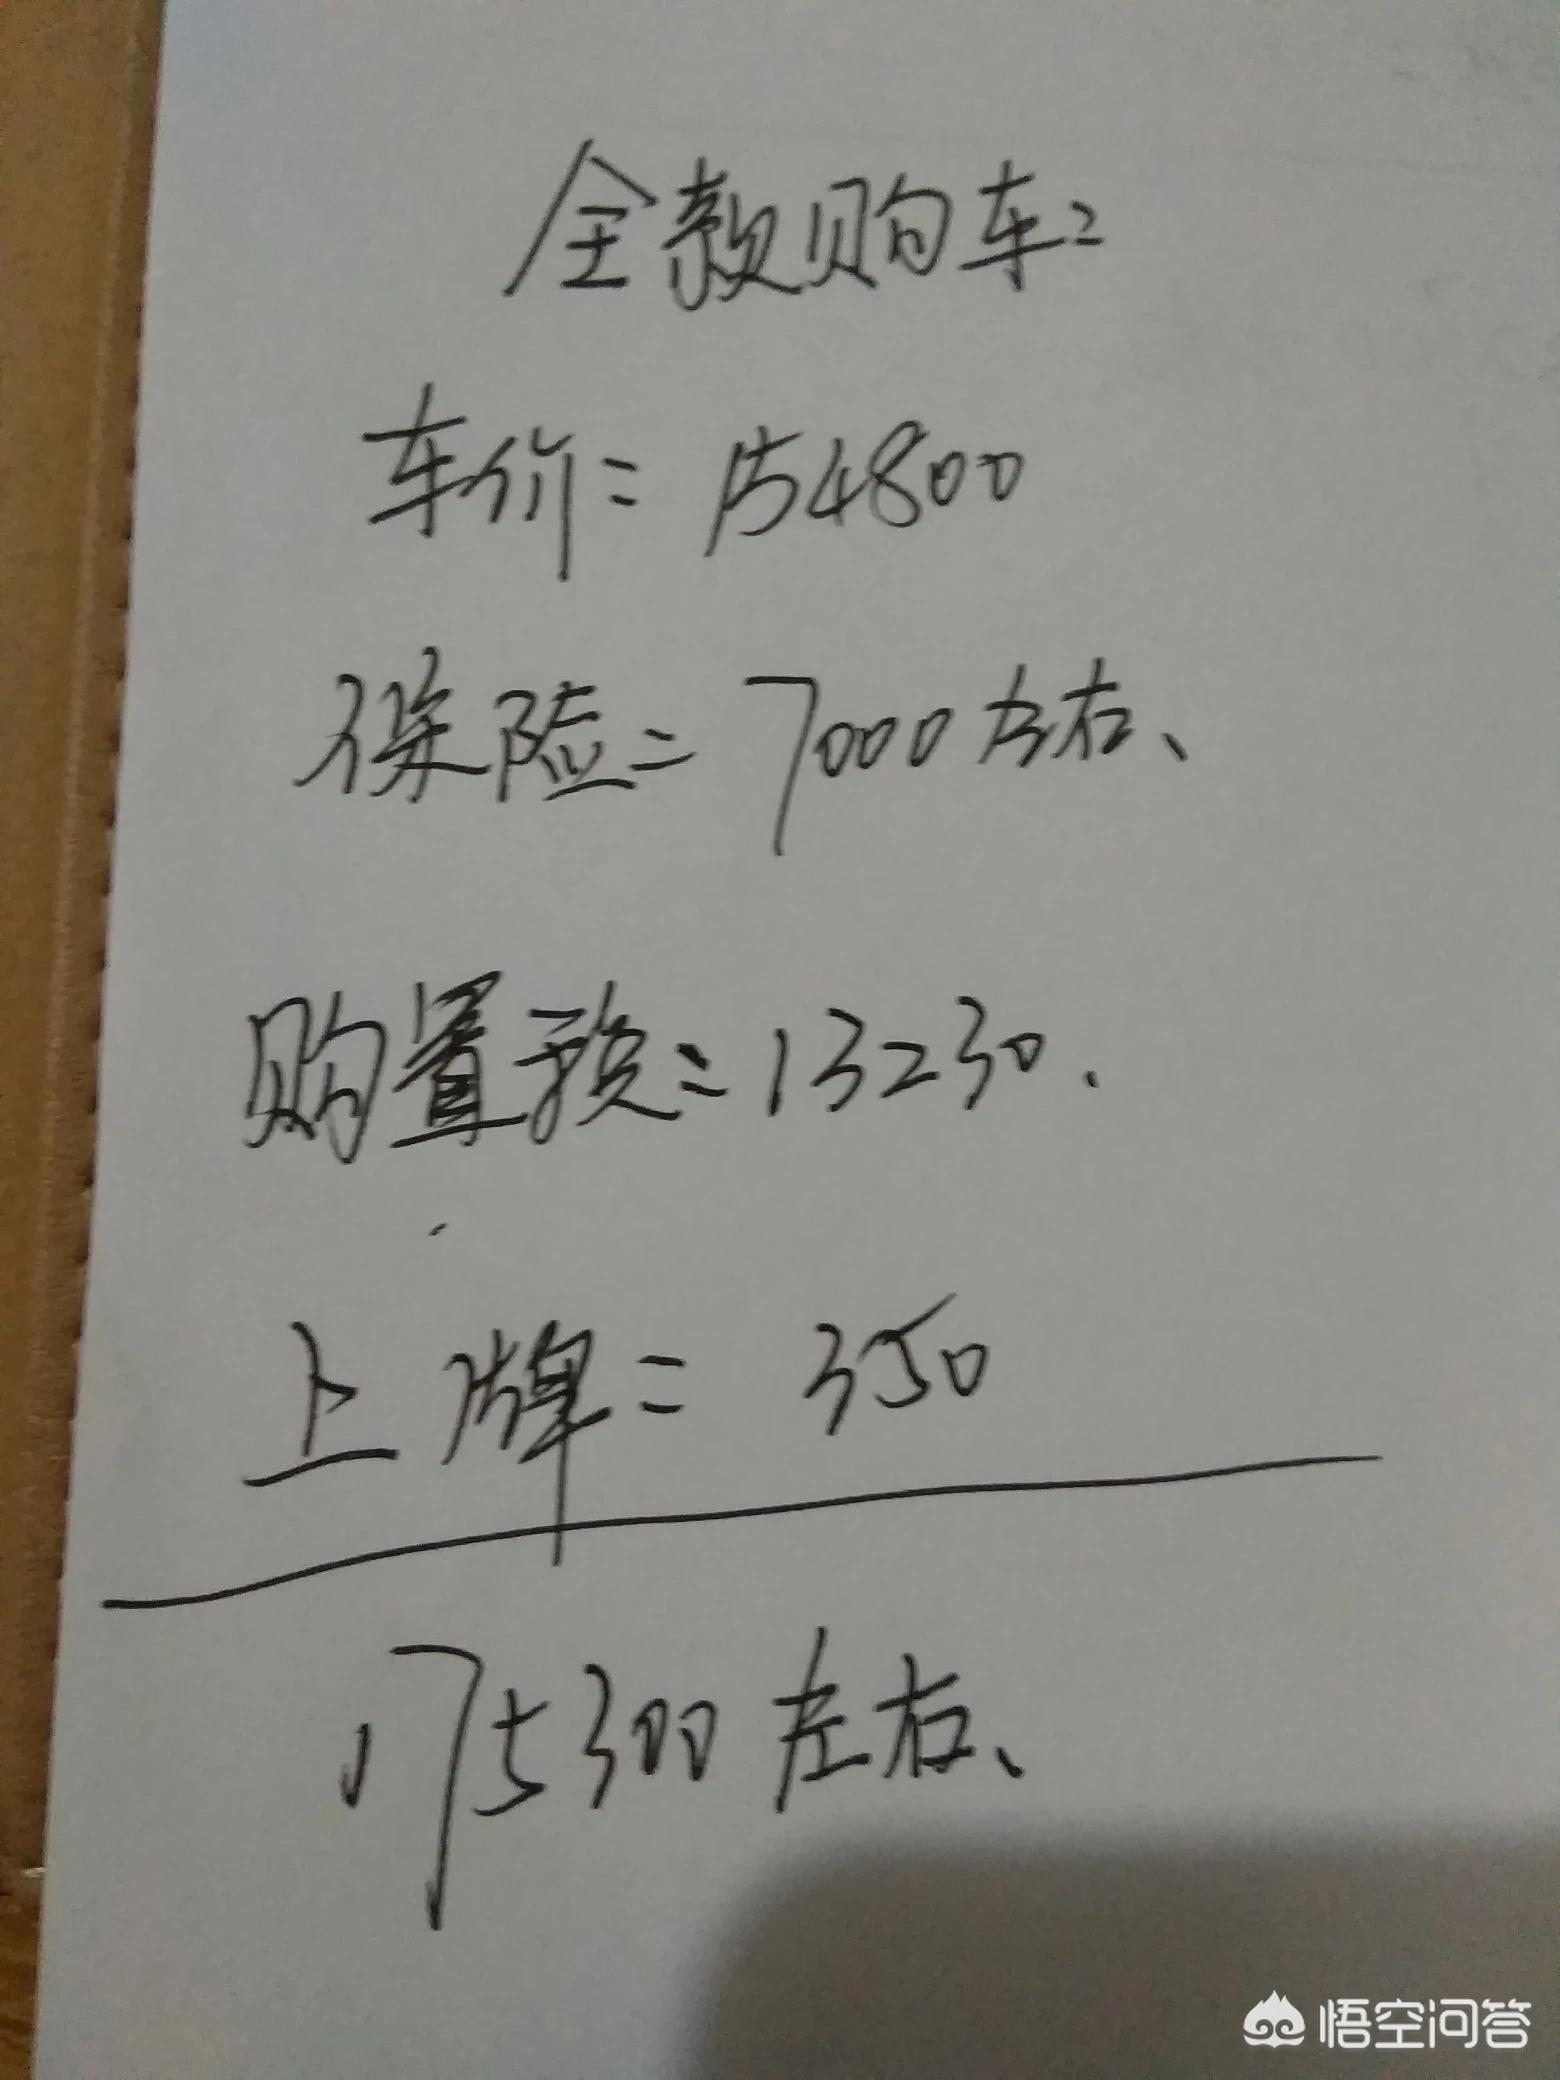 全款购车:
车价= 154800
保险= 7000左右、
购置税=13230.
上牌= 350
175300左右、
悟空问答